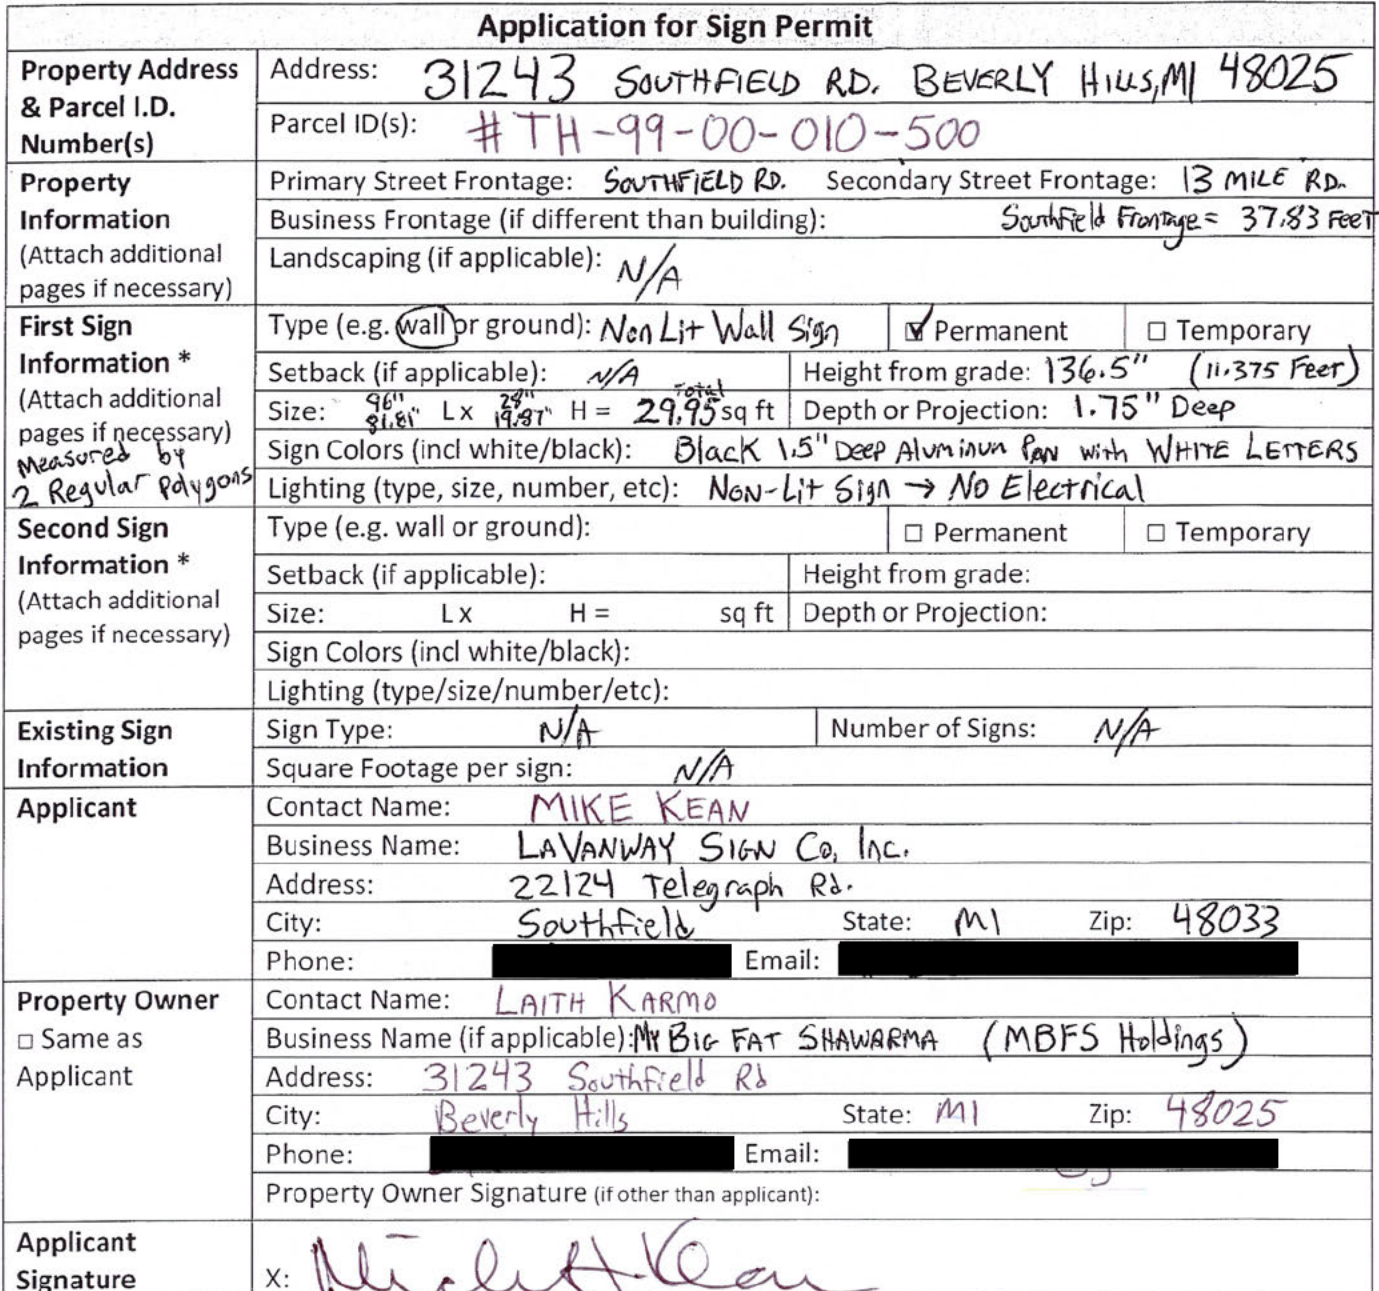 Application for Sign Permit
Property Address & Parcel I.D. Number(s)
Address: 31243 SOUTHFIELD RD. BEVERLY HILLS, MI 48025
Parcel ID(s): #TH-99-00-010-500
Property Information (Attach additional pages if necessary)
Primary Street Frontage: SOUTHFIELD RD. Secondary Street Frontage: 13 MILE RD.
Business Frontage (if different than building): Southfield Frontage = 37.83 FEET
Landscaping (if applicable): N/A
First Sign Information * (Attach additional pages if necessary) Measured by 2 Regular Polygons
Type (e.g. wall or ground): Non Lit Wall Sign ☑ Permanent □ Temporary
Setback (if applicable): N/A Height from grade: 136.5" (11.375 Feet)
Size: 96" 81.81" L x 28" 19.87" H = Total 29.95 sq ft Depth or Projection: 1.75" Deep
Sign Colors (incl white/black): Black 1.5" Deep Aluminum Pan with WHITE LETTERS
Lighting (type, size, number, etc): NON-Lit Sign → No Electrical
Second Sign Information * (Attach additional pages if necessary)
Type (e.g. wall or ground): □ Permanent □ Temporary
Setback (if applicable): Height from grade:
Size: L x H = sq ft Depth or Projection:
Sign Colors (incl white/black):
Lighting (type/size/number/etc):
Existing Sign Information
Sign Type: N/A Number of Signs: N/A
Square Footage per sign: N/A
Applicant
Contact Name: MIKE KEAN
Business Name: LAVANWAY SIGN Co, Inc.
Address: 22124 Telegraph Rd.
City: Southfield State: MI Zip: 48033
Phone: Email:
Property Owner □ Same as Applicant
Contact Name: LAITH KARMO
Business Name (if applicable): MY BIG FAT SHAWARMA (MBFS Holdings)
Address: 31243 Southfield Rd
City: Beverly Hills State: MI Zip: 48025
Phone: Email:
Property Owner Signature (if other than applicant):
Applicant Signature
X: